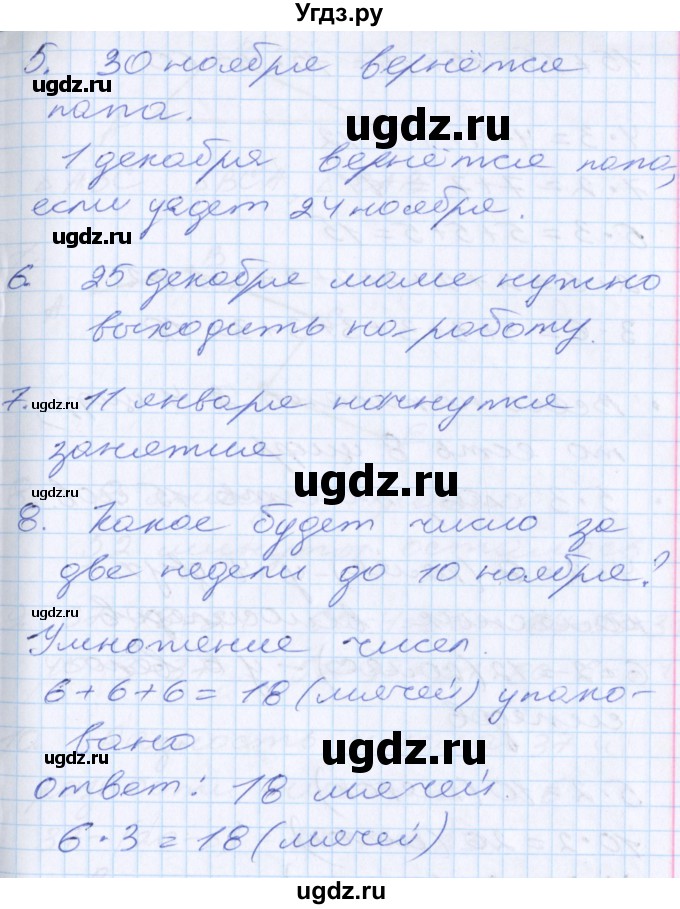 Угдз.ру
5. 30 ноября вернётся
ugdz.ru
папа.
ugdz.ru
1 декабря вернётся папа,
если уедет 24 ноября.
ugdz.ru
6. 25 декабря маме нужно
выходить на работу.
7. 11 января начнутся
ugdz.ru
ugdz.ru
занятия
ugdz.ru
8. Какое будет число за
две недели до 10 ноября?
ugdz.ru
ugdz.ru
Умножение чисел.
6+6+6=18 (мячей) упако-
вано
ugdz.ru
ugdz.ru
ответ: 18 мячей.
6·3=18 (мячей)
ugdz.ru